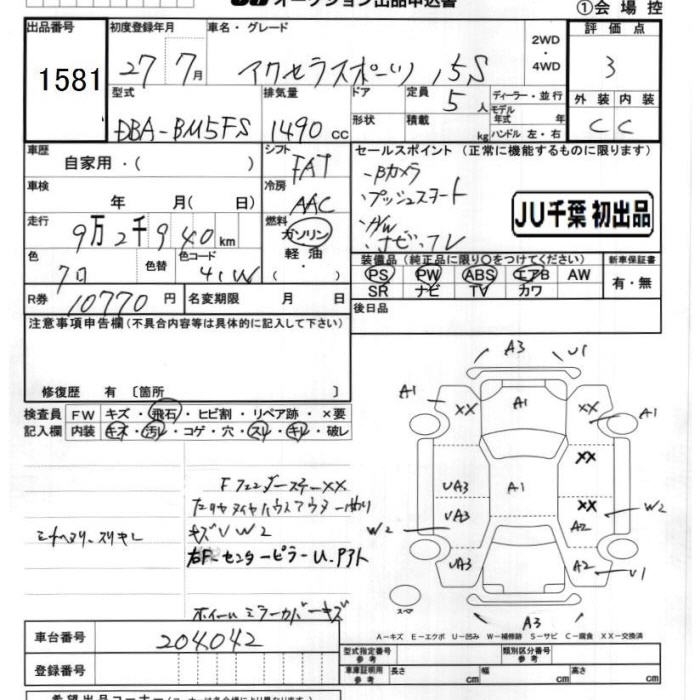 オークション出品申込書 ①会場控
出品番号 初度登録年月 車名・グレード 2WD・4WD 評価点
1581 27 7月 アクセラスポーツ 15S 3
型式 排気量 ドア 定員 5人 ディーラー・並行 外装 内装
形状 積載 kg モデル年式 年式 ハンドル 左・右
DBA-BM5FS 1490cc C C
車歴 シフト セールスポイント (正常に機能するものに限ります)
自家用・( ) FAT
車検 冷房 ・Bカメラ
年 月( 日) AAC ・プッシュスタート
JU千葉 初出品
走行 9万2千940km 燃料 ガソリン 軽油・( ) ・H/W
・ナビ・フレ
色 色替 色コード 装備品 (純正品に限り○をつけてください) 新車保証書
41W PS PW ABS エアB AW 有・無
SR ナビ TV カワ
R券 10770円 名変期限 月 日 後日品
注意事項申告欄(不具合内容等は具体的に記入して下さい)
修復歴 有 〔箇所 〕
検査員 FW キズ・飛石・ヒビ割・リペア跡・×要
記入欄 内装 キズ・汚レ・コゲ・穴・スレ・キレ・破レ
A3 U1
A1 XX A1 XX A1
XX
UA3 A1
UA3 XX W2
W2 A2
UA3 A2 U1
スペア
A3
FフェンダーステーXX
キズVW2
センターピラーU.P3ト
ホイールミラーカバーキズ
A-キズ E-エクボ U-凹み W-補修跡 S-サビ C-腐食 XX-交換済
車台番号 204042
型式指定番号 参考 類別区分番号 参考
登録番号 車庫証明用 参考 長さ cm 幅 cm 高さ cm
希望出品コーナー